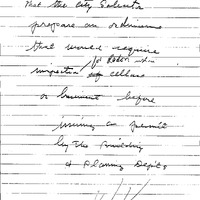 that the City Solicitor
prepare an ordinance
that would require
for Radon in
inspection of cellars
or basement before
issuing a permit
by the Building
& Planning Depts